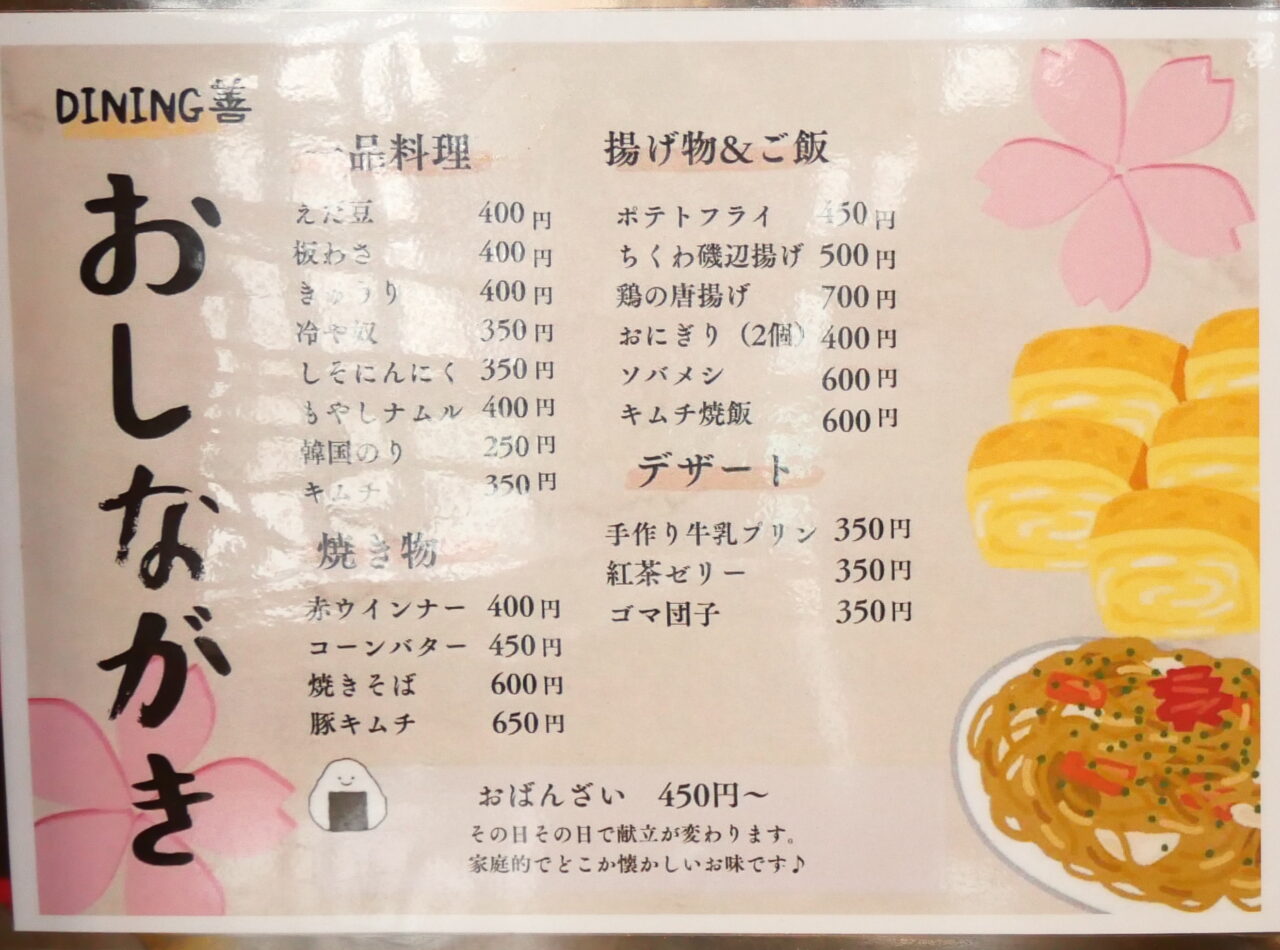 DINING善
おしながき
一品料理
えだ豆 400円
板わさ 400円
きゅうり 400円
冷や奴 350円
しそにんにく 350円
もやしナムル 400円
韓国のり 250円
キムチ 350円
焼き物
赤ウインナー 400円
コーンバター 450円
焼きそば 600円
豚キムチ 650円
揚げ物&ご飯
ポテトフライ 450円
ちくわ磯辺揚げ 500円
鶏の唐揚げ 700円
おにぎり（2個）400円
ソバメシ 600円
キムチ焼飯 600円
デザート
手作り牛乳プリン 350円
紅茶ゼリー 350円
ゴマ団子 350円
おばんざい 450円～
その日その日で献立が変わります。
家庭的でどこか懐かしいお味です♪